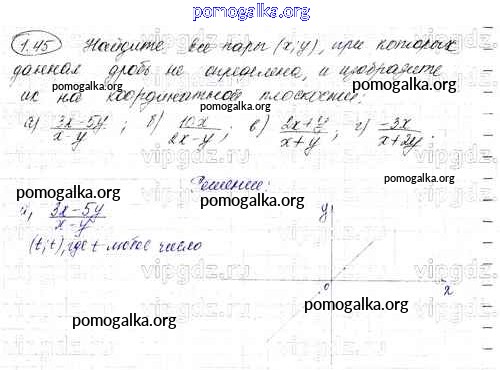 pomogalka.org
1.45 Найдите все пары (x; y), при которых
данная дробь не определена, и изобразите
их на координатной плоскости:
а) 3x-5y / x-y ; б) 10x / 2x-y ; в) 2x+y / x+y ; г) -3x / x+2y ;
Решение:
а) 3x-5y / x-y
(t; t), где t любое число
y
0
x
pomogalka.org
pomogalka.org
pomogalka.org
pomogalka.org
pomogalka.org
pomogalka.org
pomogalka.org
pomogalka.org
pomogalka.org
vipgdz.com
vipgdz.com
vipgdz.com